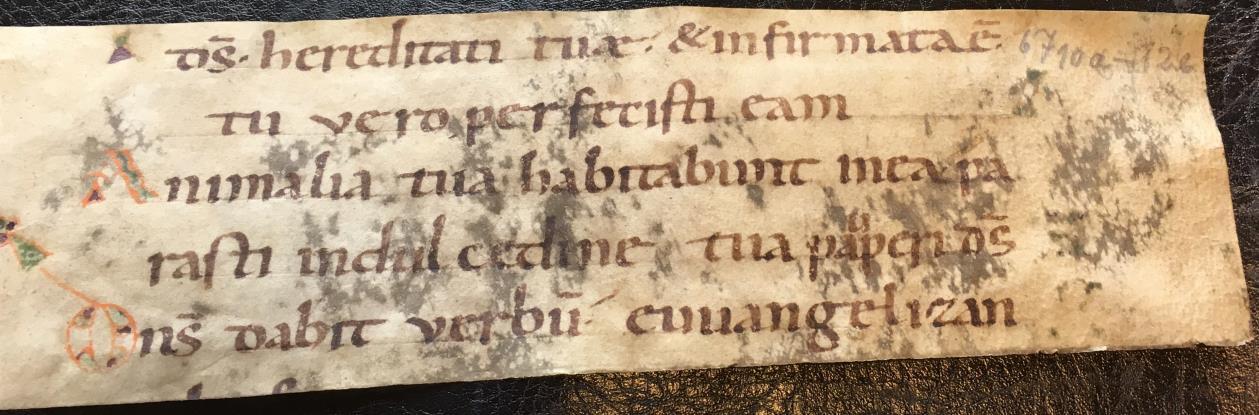 dꝉs̄· hereditati tuæ· & infirmata ē·
tu vero perfecisti eam
Animalia tua habitabunt inea pa
rasti indulcedine tua pauperi ds̄
Dns̄ dabit verbū· euuangelizan